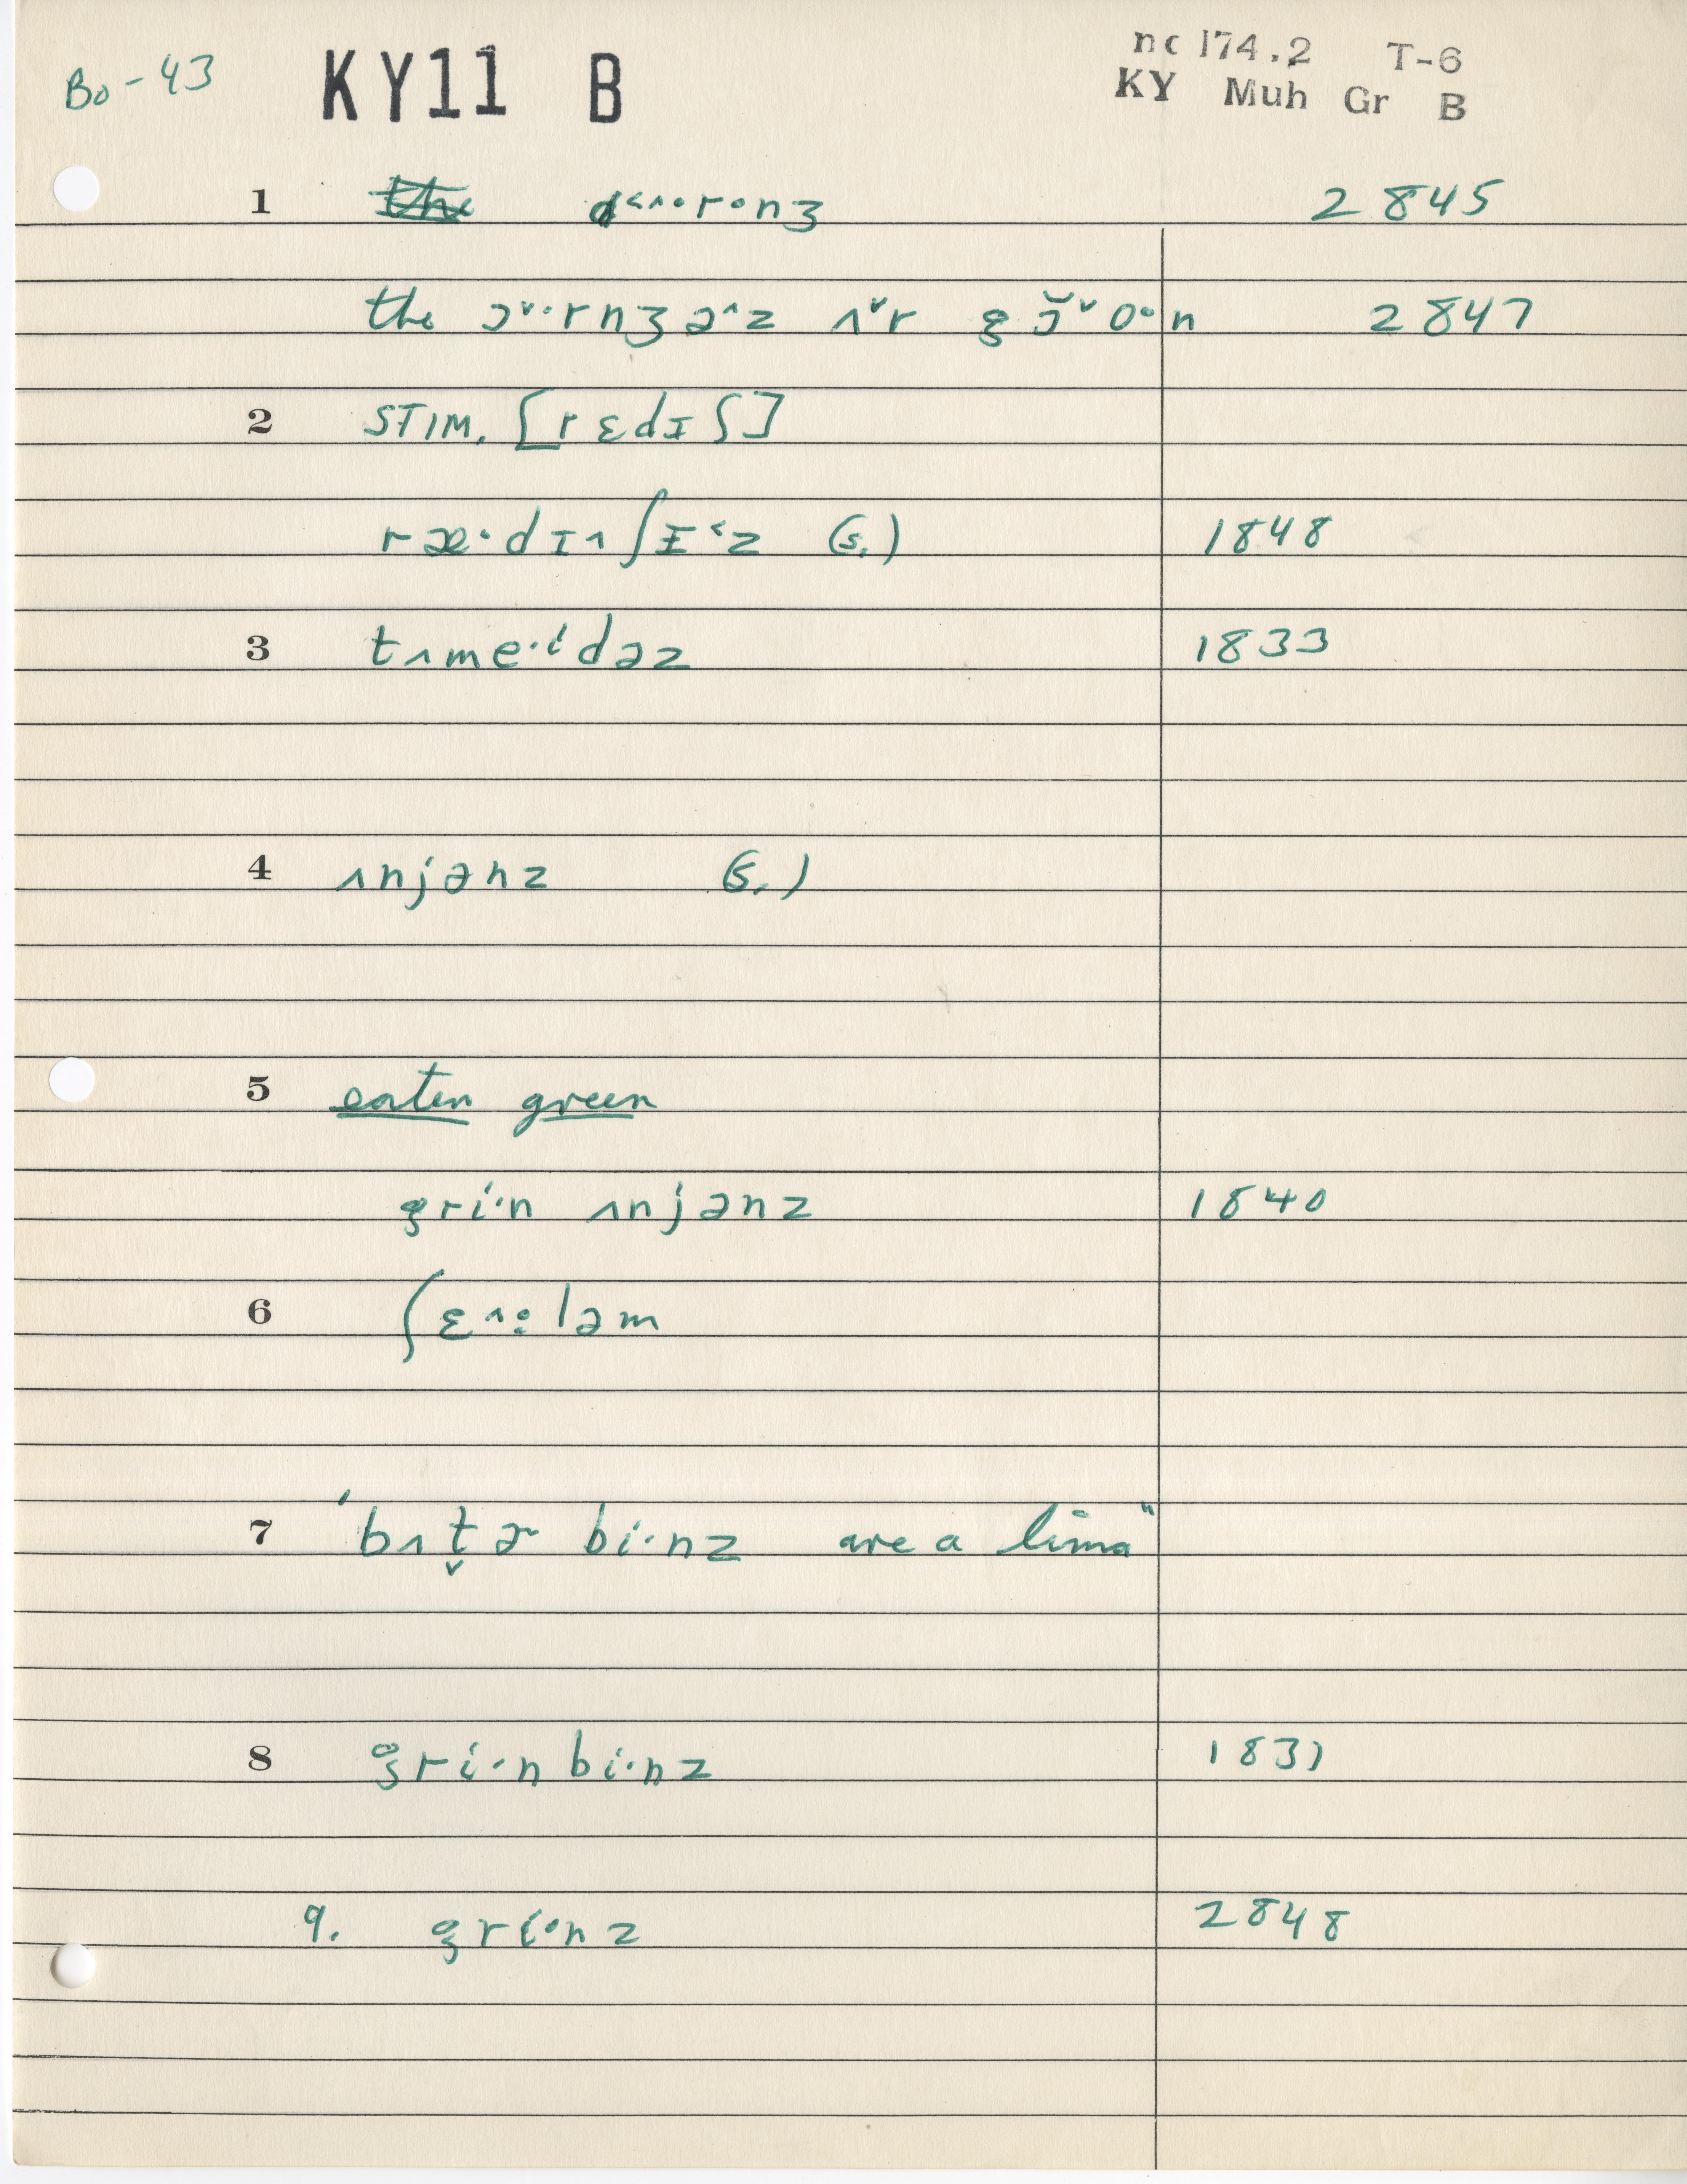 Bo-43 KY11 B nc 174.2 T-6
KY Muh Gr B
1 2845
the 2847
2 STIM. [rɛdɪʃ]
ræ·dɪ˄ʃɪ˂z (s.) 1848
3 tʌme·ɨdəz 1833
4 ʌnjənz (s.)
5 eaten green
gri·n ʌnjənz 1840
6 ʃɛ˄·ləm
7 "bʌt̬ɚ bi·nz are a lima"
8 gri·n bi·nz 1831
9. gri·nz 2848